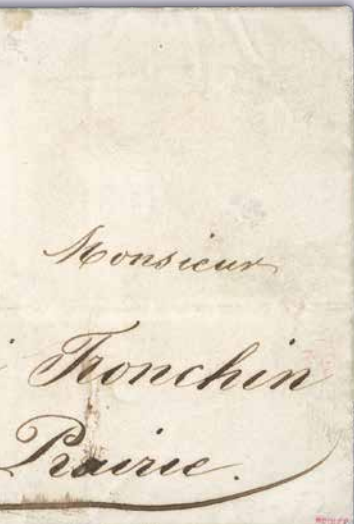 Monsieur
Tronchin
Prairie.